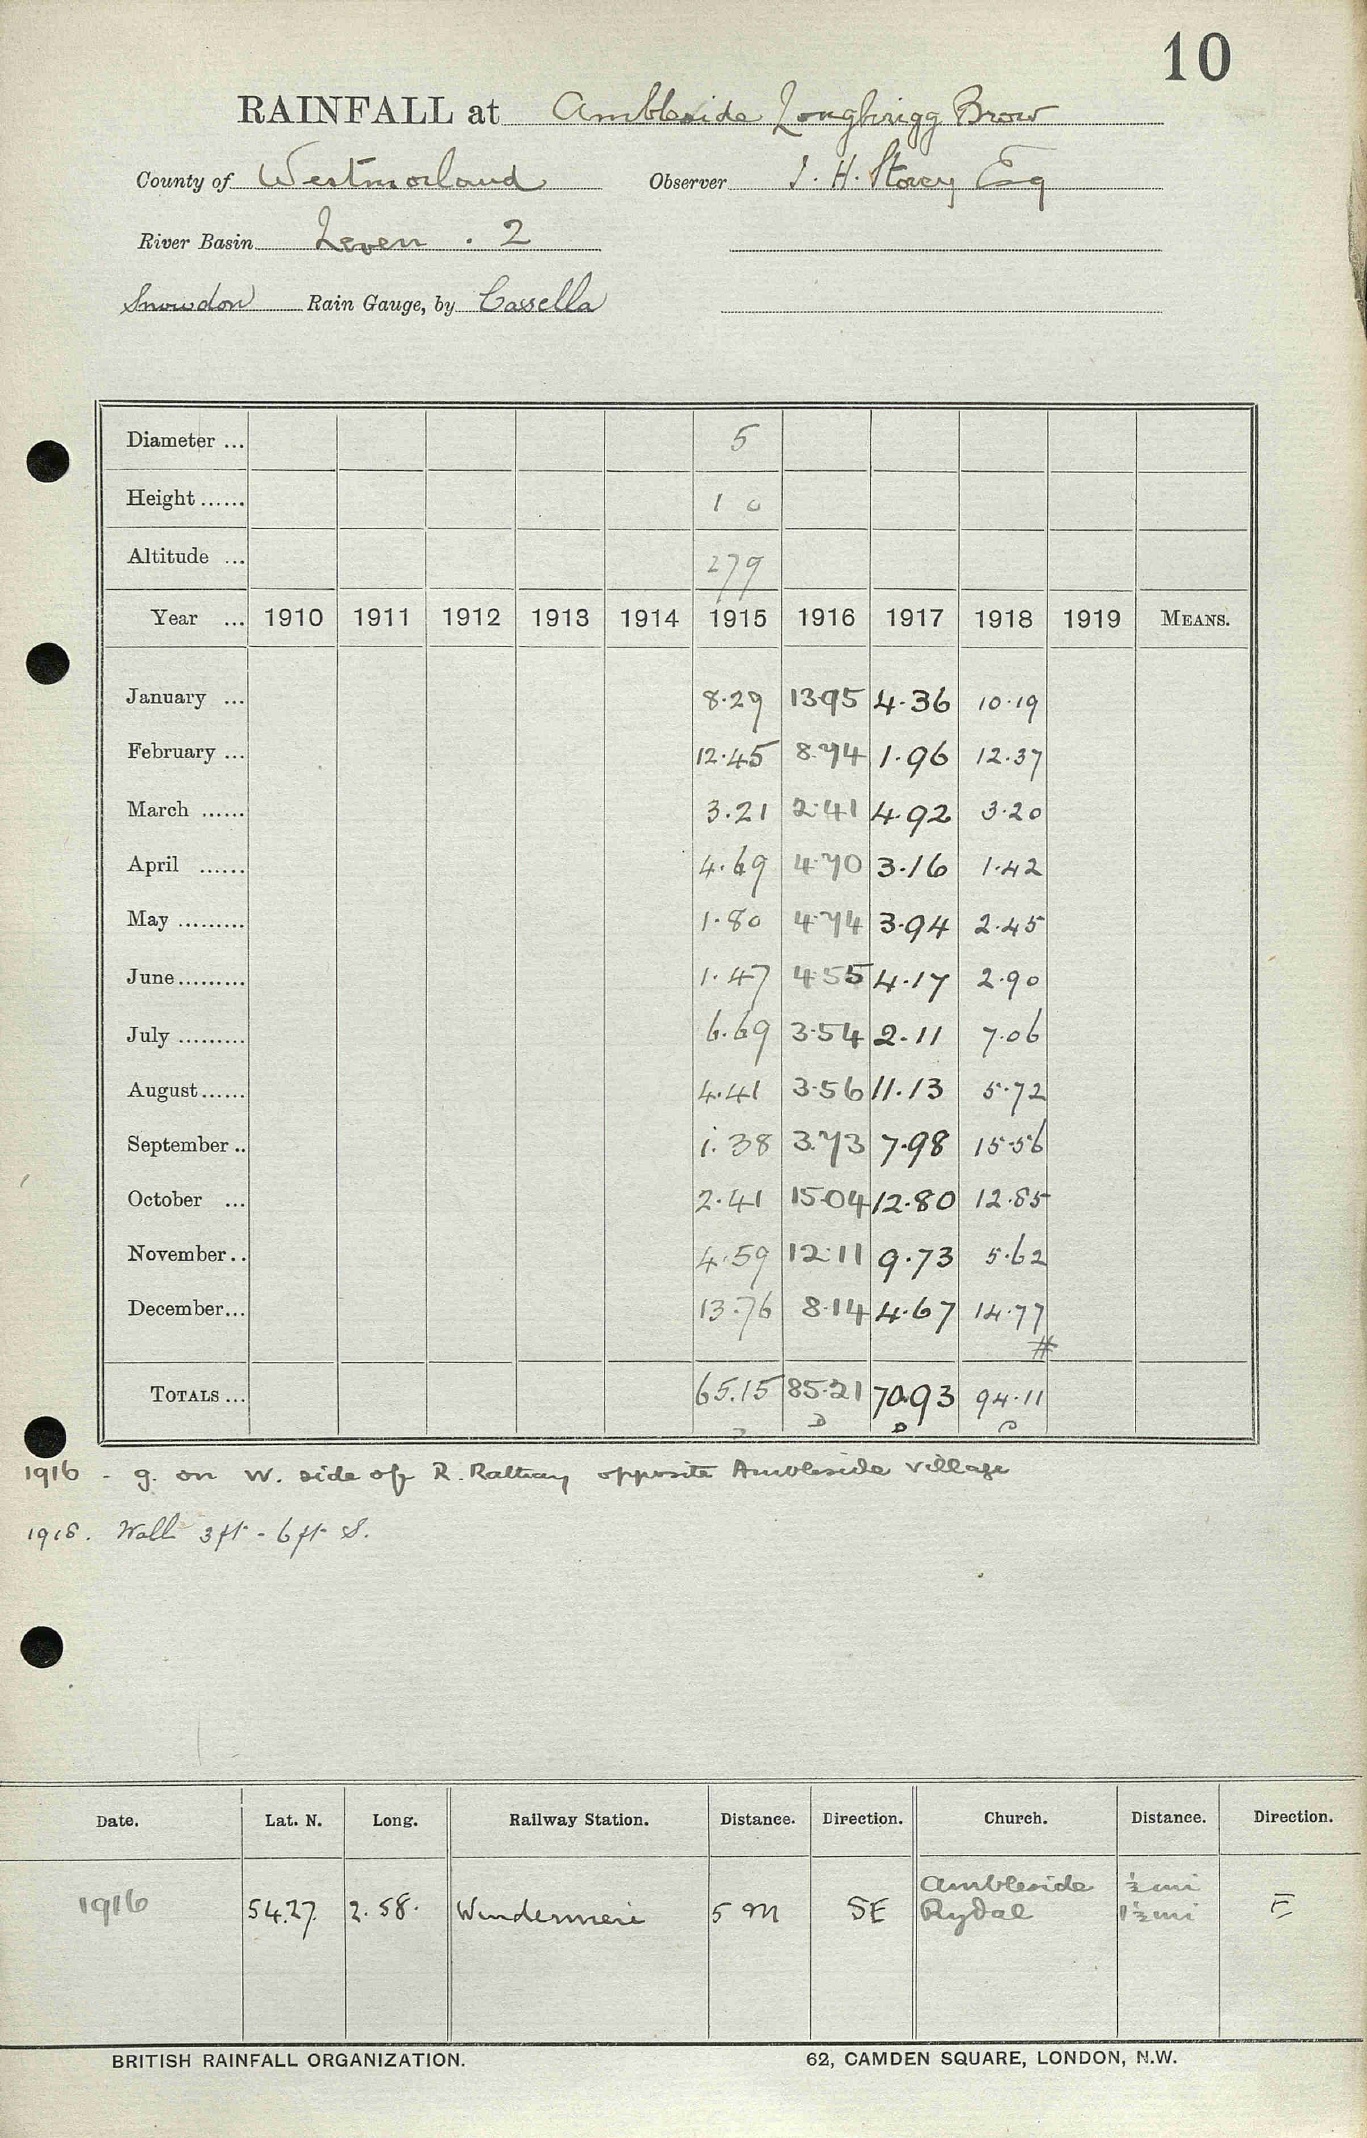 10
RAINFALL at Ambleside Loughrigg Brow
County of Westmorland Observer J. H. Storey Esq
River Basin Leven . 2
Snowdon Rain Gauge, by Cassella
Diameter ... 5
Height ...... 1 0
Altitude ... 279
Year ... 1910 1911 1912 1913 1914 1915 1916 1917 1918 1919 MEANS.
January ... 8.29 13.95 4.36 10.19
February ... 12.45 8.74 1.96 12.37
March ...... 3.21 2.41 4.92 3.20
April ...... 4.69 4.70 3.16 1.42
May ......... 1.80 4.74 3.94 2.45
June ......... 1.47 4.55 4.17 2.90
July ......... 6.69 3.54 2.11 7.06
August ...... 4.41 3.56 11.13 5.72
September .. 1.38 3.73 7.98 15.56
October ... 2.41 15.04 12.80 12.85
November .. 4.59 12.11 9.73 5.62
December ... 13.76 8.14 4.67 14.77
#
TOTALS ... 65.15 85.21 70.93 94.11
1916 - g. on W. side of R. Rothay opposite Ambleside village
1918. Wall 3 ft - 6 ft S.
Date. Lat. N. Long. Railway Station. Distance. Direction. Church. Distance. Direction.
1916 54.27. 2.58. Windermere 5 M SE Ambleside ½ mi E
Rydal 1½ mi
BRITISH RAINFALL ORGANIZATION. 62, CAMDEN SQUARE, LONDON, N.W.